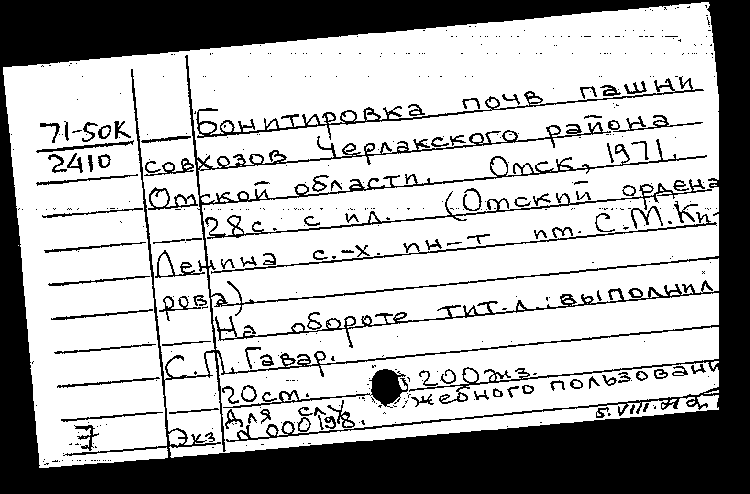 71-50К Бонитировка почв пашни
2410 совхозов Черлакского района
Омской области. Омск, 1971.
28с. с ил. (Омский ордена
Ленина с.-х. ин-т им. С.М.Ки-
рова).
На обороте тит.л.: выполнил
С.П.Гавар.
20см. 200экз.
Для служебного пользовани
7 Экз № 000198.
5.VIII.71